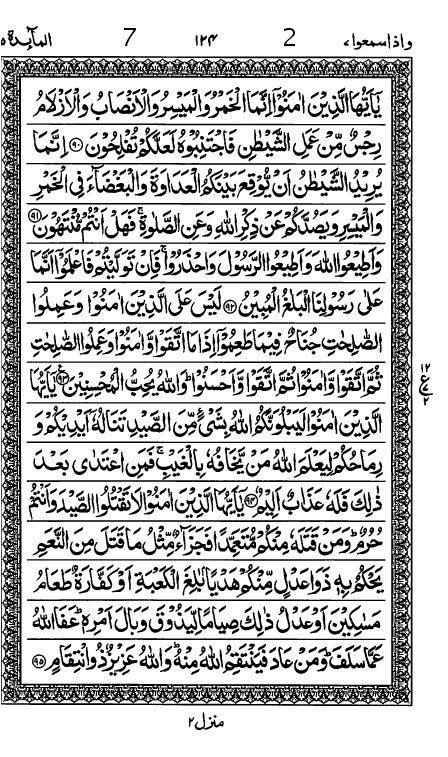 واذاسمعوا، 2 ١٢٤ 7 المآئدة ٥
يٰۤاَيُّهَا الَّذِيْنَ اٰمَنُوْۤا اِنَّمَا الْخَمْرُ وَالْمَيْسِرُ وَالْاَنْصَابُ وَالْاَزْلَامُ
رِجْسٌ مِّنْ عَمَلِ الشَّيْطٰنِ فَاجْتَنِبُوْهُ لَعَلَّكُمْ تُفْلِحُوْنَ ﴿٩٠﴾ اِنَّمَا
يُرِيْدُ الشَّيْطٰنُ اَنْ يُّوْقِعَ بَيْنَكُمُ الْعَدَاوَةَ وَالْبَغْضَآءَ فِى الْخَمْرِ
وَالْمَيْسِرِ وَيَصُدَّكُمْ عَنْ ذِكْرِ اللّٰهِ وَعَنِ الصَّلٰوةِ ۚ فَهَلْ اَنْتُمْ مُّنْتَهُوْنَ ﴿٩١﴾
وَاَطِيْعُوا اللّٰهَ وَاَطِيْعُوا الرَّسُوْلَ وَاحْذَرُوْا ۚ فَاِنْ تَوَلَّيْتُمْ فَاعْلَمُوْۤا اَنَّمَا
عَلٰى رَسُوْلِنَا الْبَلٰغُ الْمُبِيْنُ ﴿٩٢﴾ لَيْسَ عَلَى الَّذِيْنَ اٰمَنُوْا وَعَمِلُوا
الصّٰلِحٰتِ جُنَاحٌ فِيْمَا طَعِمُوْۤا اِذَا مَا اتَّقَوْا وَّاٰمَنُوْا وَعَمِلُوا الصّٰلِحٰتِ
ثُمَّ اتَّقَوْا وَّاٰمَنُوْا ثُمَّ اتَّقَوْا وَّاَحْسَنُوْا ؕ وَاللّٰهُ يُحِبُّ الْمُحْسِنِيْنَ ﴿٩٣﴾ يٰۤاَيُّهَا
١٢
ع
٢
الَّذِيْنَ اٰمَنُوْا لَيَبْلُوَنَّكُمُ اللّٰهُ بِشَىْءٍ مِّنَ الصَّيْدِ تَنَالُهٗۤ اَيْدِيْكُمْ وَ
رِمَاحُكُمْ لِيَعْلَمَ اللّٰهُ مَنْ يَّخَافُهٗ بِالْغَيْبِ ۚ فَمَنِ اعْتَدٰى بَعْدَ
ذٰلِكَ فَلَهٗ عَذَابٌ اَلِيْمٌ ﴿٩٤﴾ يٰۤاَيُّهَا الَّذِيْنَ اٰمَنُوْا لَا تَقْتُلُوا الصَّيْدَ وَاَنْتُمْ
حُرُمٌ ؕ وَمَنْ قَتَلَهٗ مِنْكُمْ مُّتَعَمِّدًا فَجَزَآءٌ مِّثْلُ مَا قَتَلَ مِنَ النَّعَمِ
يَحْكُمُ بِهٖ ذَوَا عَدْلٍ مِّنْكُمْ هَدْيًۢا بٰلِغَ الْكَعْبَةِ اَوْ كَفَّارَةٌ طَعَامُ
مَسٰكِيْنَ اَوْ عَدْلُ ذٰلِكَ صِيَامًا لِّيَذُوْقَ وَبَالَ اَمْرِهٖ ؕ عَفَا اللّٰهُ
عَمَّا سَلَفَ ؕ وَمَنْ عَادَ فَيَنْتَقِمُ اللّٰهُ مِنْهُ ؕ وَاللّٰهُ عَزِيْزٌ ذُو انْتِقَامٍ ﴿٩٥﴾
منزل ٢